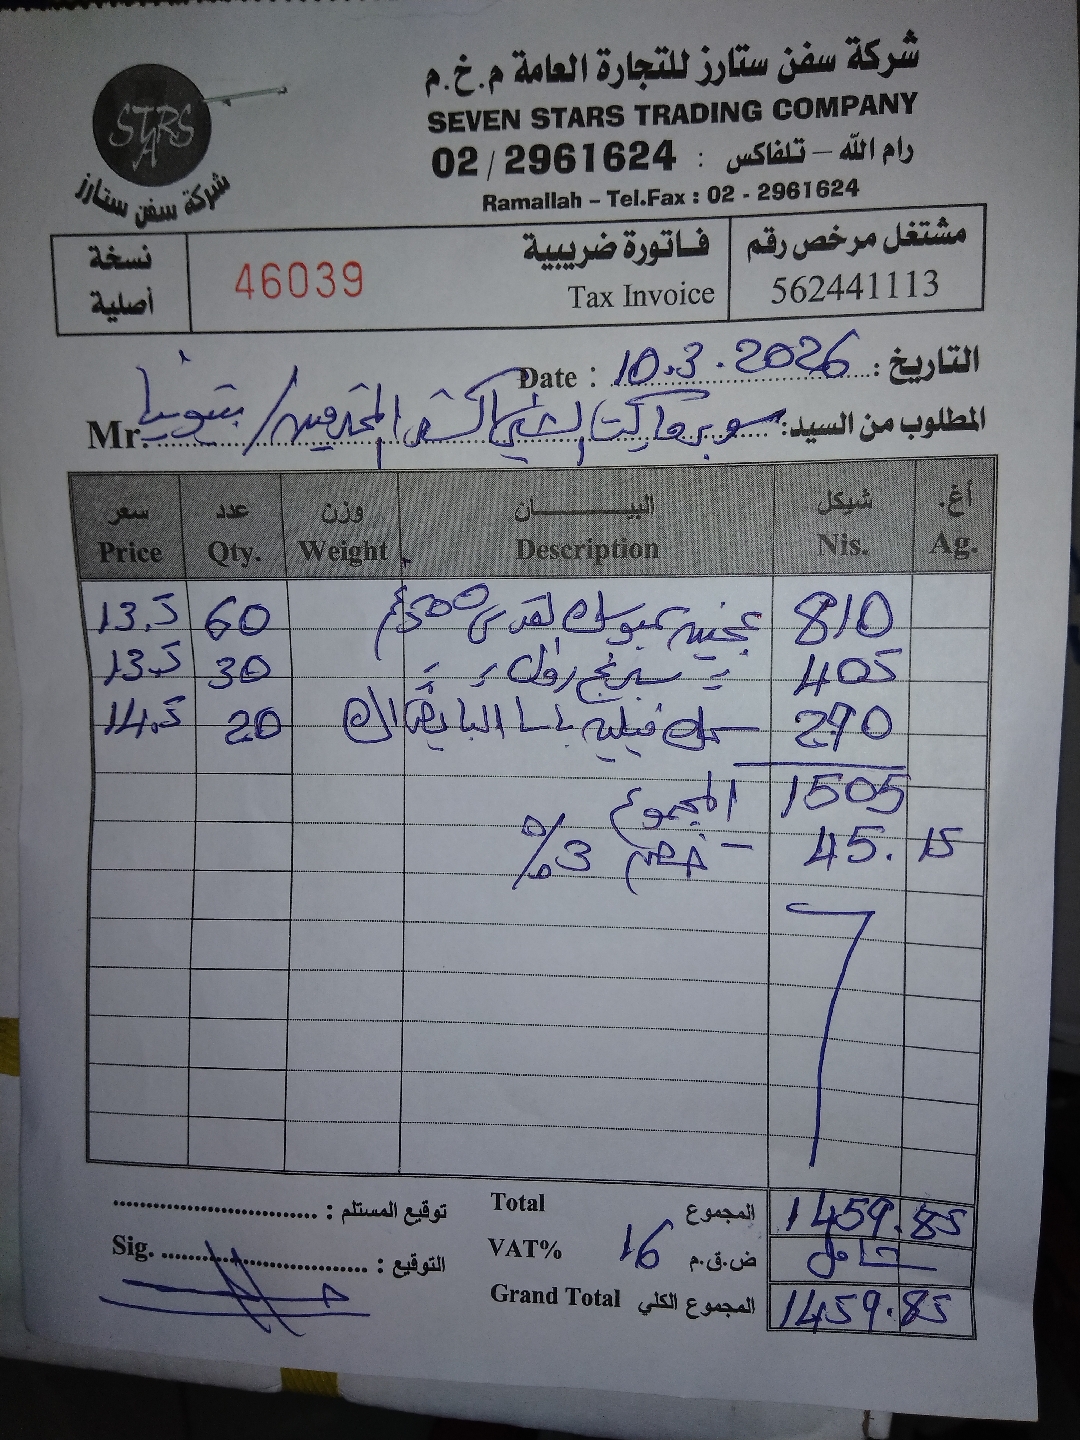 شركة سفن ستارز للتجارة العامة م.خ.م
SEVEN STARS TRADING COMPANY
رام الله – تلفاكس : 02 / 2961624
Ramallah – Tel.Fax : 02 - 2961624
STARS
شركة سفن ستارز
مشتغل مرخص رقم
562441113
فاتورة ضريبية
Tax Invoice
46039
نسخة
أصلية
التاريخ : 10.3.2026 Date :
المطلوب من السيد: سوبرماركت / بيتونيا Mr.
أغ. شيكل البيــــان وزن عدد سعر
Ag. Nis. Description Weight Qty. Price
810 500غم 60 13.5
405 رول 30 13.5
290 سمك فيليه باسا 20 14.5
1505 المجموع
45.15 - خصم 3%
Total المجموع 1459.85
VAT% 16 ض.ق.م شامل
Grand Total المجموع الكلي 1459.85
توقيع المستلم : ....................
Sig. .................... التوقيع :